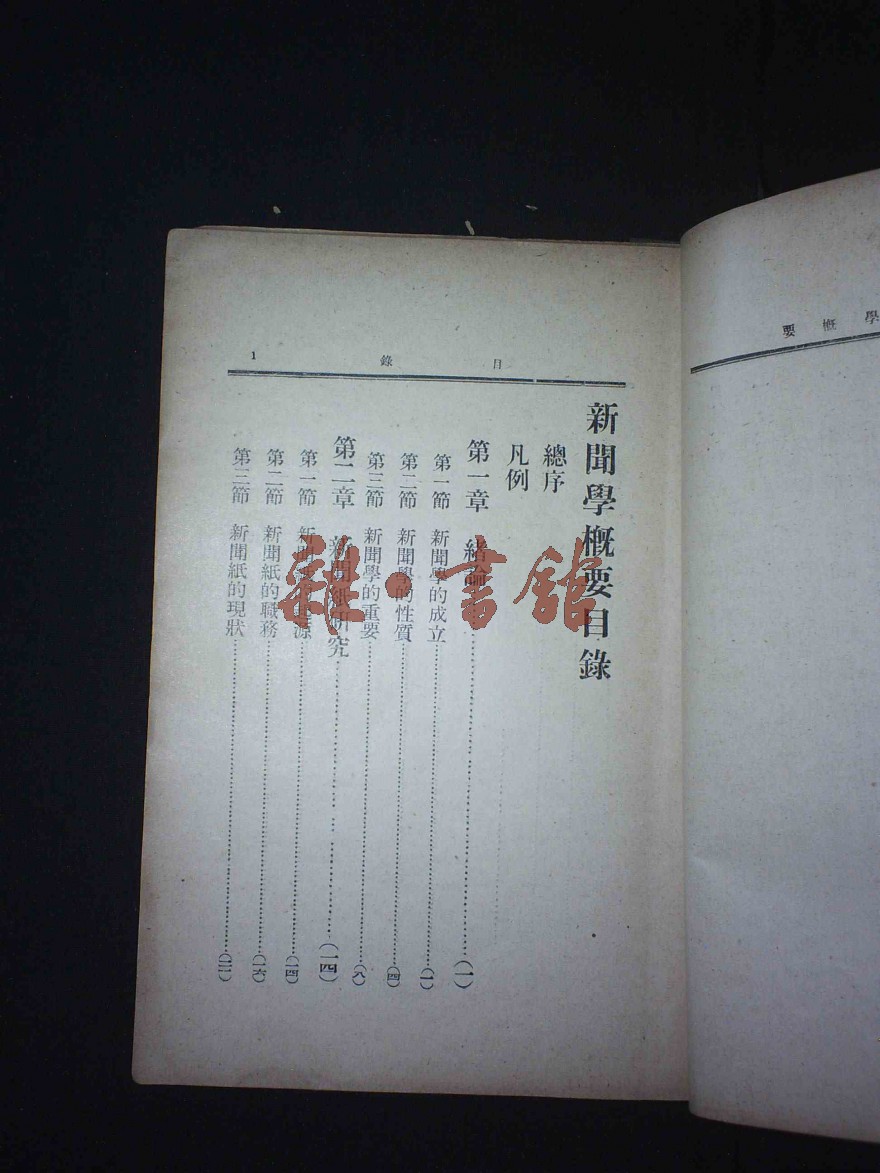 學概要
目錄 1
新聞學概要目錄
總序
凡例
第一章 緒論……(一)
第一節 新聞學的成立……(一)
第二節 新聞學的性質……(四)
第三節 新聞學的重要……(八)
第二章 新聞紙研究……(一四)
第一節 新聞紙的 源……(一四)
第二節 新聞紙的職務……(一六)
第三節 新聞紙的現狀……
雜·書館